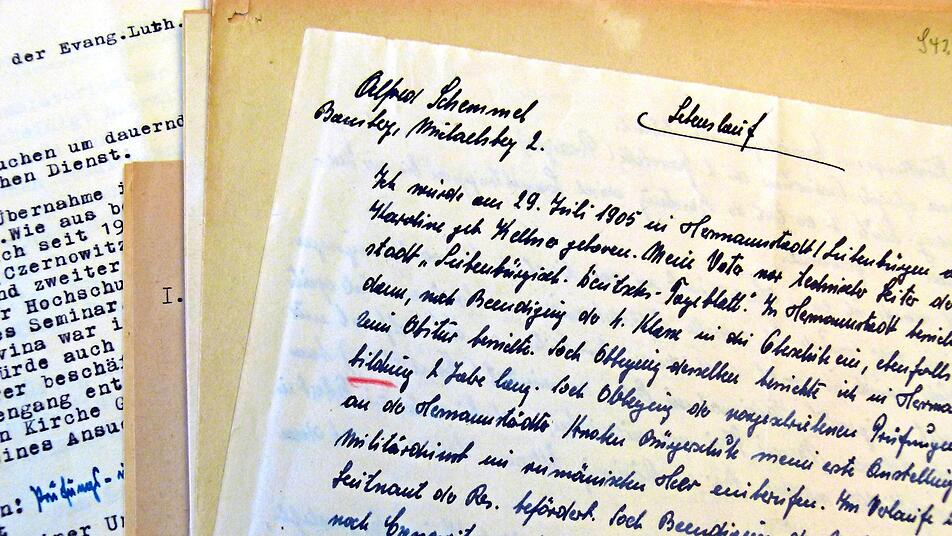 der Evang.Luth.
uchen um dauernd
hen Dienst.
Übernahme i
.Wie aus be
ch seit 19
Czernowitz
nd zweiter
r Hochschu
es Seminar
vina war i
ürde auch
er beschä
engang ent
n Kirche G
ines Ansuc
n: Prüfungs-
iner Un
I.
S42
Alfred Schemmel
Bamberg, Michaelsberg 2.
Lebenslauf
Ich wurde am 29. Juli 1905 in Hermannstadt/Siebenbürgen
Karoline geb. Kellner geboren. Mein Vater war technischer Leiter de
stadt „Siebenbürgisch-Deutsches-Tageblatt". In Hermannstadt besuch
dann, nach Beendigung der 4. Klasse in die Oberschule ein, ebenfalls
zum Abitur besuchte. Nach Ablegung desselben besuchte ich in Herma
bildung 2 Jahre lang. Nach Ablegung der vorgeschriebenen Prüfungen
an der Hermannstädter Knaben Bürgerschule meine erste Anstellung
Militärdienst im rumänischen Heer einberufen. Im Verlaufe
Leutnant der Res. befördert. Nach Beendigung
nach